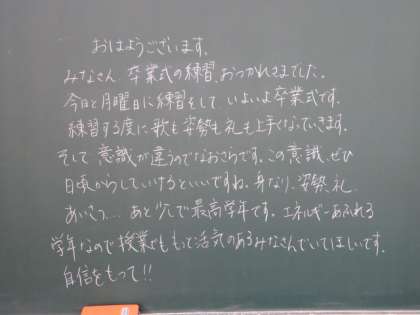 おはようございます。
みなさん、卒業式の練習、おつかれさまでした。
今日と月曜日に練習をして、いよいよ卒業式です。
練習する度に歌も姿勢も礼も上手くなっていきます。
そして意識が違うのでなおさらです。この意識、ぜひ
日頃からしていけるといいですね。身なり、姿勢、礼、
あいさつ… あと少しで最高学年です。エネルギーあふれる
学年なので授業でももっと活気のあるみなさんでいてほしいです。
自信をもって!!